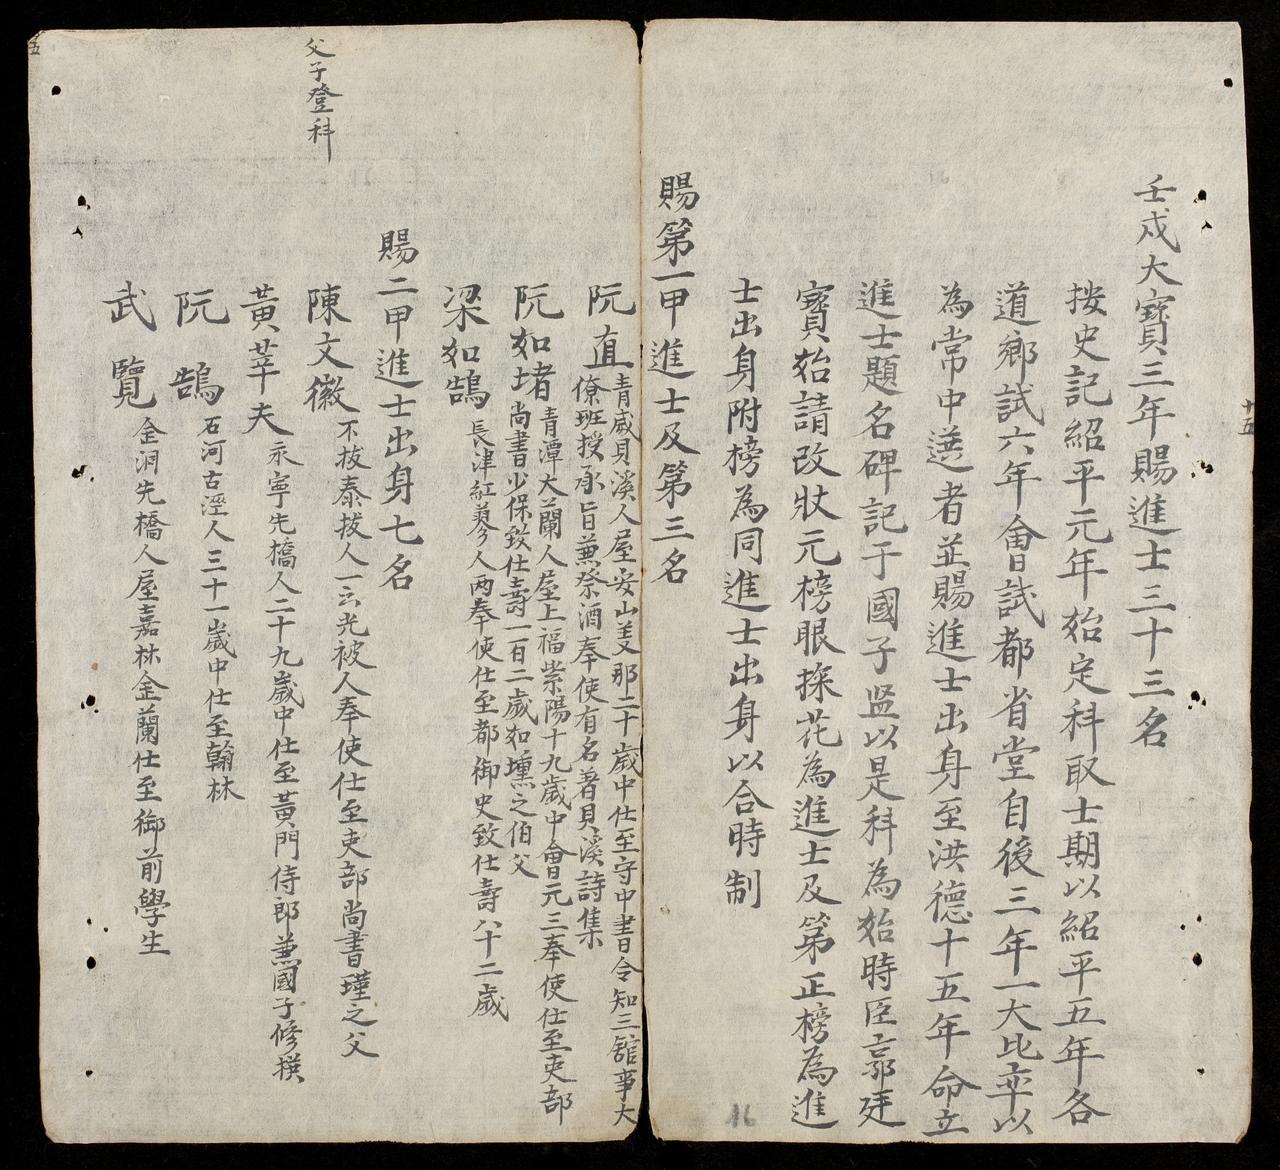 壬戌大寶三年賜進士三十三名
按史記紹平元年始定科取士期以紹平五年各
道鄉試六年會試都省堂自後三年一大比率以
為常中選者並賜進士出身至洪德十五年命立
進士題名碑記于國子监以是科為始時臣郭廷
寳始請改狀元榜眼探花為進士及第正榜為進
士出身附榜為同進士出身以合時制
賜第一甲進士及第三名
阮直青威貝溪人屋安山美那二十歲中仕至守中書令知三舘事大
僚班授承旨兼祭酒奉使有名著貝溪詩集
阮如堵青潭大蘭人屋上福紫陽十九歲中會元三奉使仕至吏部
尚書少保致仕壽一百二歲如壎之伯父
梁如鵠長津紅蓼人两奉使仕至都御史致仕壽八十二歲
賜二甲進士出身七名
父子登科
陳文徽不拔泰拔人一云光被人奉使仕至吏部尚書瑾之父
黃莘夫永寧先橋人二十九歲中仕至黃門侍郎兼國子修撰
阮鵠石河古涇人三十一歲中仕至翰林
武覽金洞先橋人屋嘉林金蘭仕至御前學生
十五
五
16